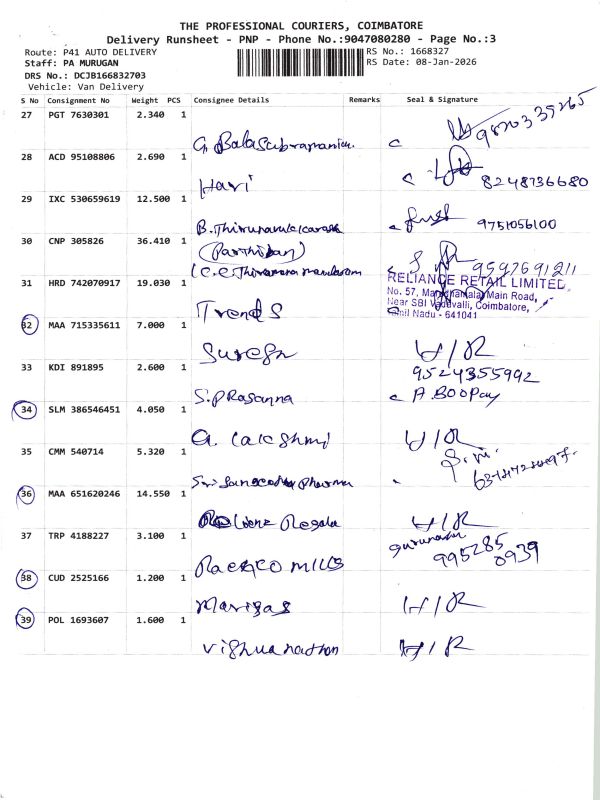 THE PROFESSIONAL COURIERS, COIMBATORE
Delivery Runsheet - PNP - Phone No.:9047080280 - Page No.:3
Route: P41 AUTO DELIVERY RS No.: 1668327
Staff: PA MURUGAN RS Date: 08-Jan-2026
DRS No.: DCJB166832703
Vehicle: Van Delivery
S No Consignment No Weight PCS Consignee Details Remarks Seal & Signature
27 PGT 7630301 2.340 1
G. Balasubramaniam
28 ACD 95108806 2.690 1
Hari 8248736680
29 IXC 530659619 12.500 1
B. 9751056100
30 CNP 305826 36.410 1
(Parthiban)
9597691211
31 HRD 742070917 19.030 1
RELIANCE RETAIL LIMITED
No. 57, Main Road,
Near SBI Vadavalli, Coimbatore,
Tamil Nadu - 641041
Trends
32 MAA 715335611 7.000 1
Suresh H/R
33 KDI 891895 2.600 1 9524355992
S. PRasanna
34 SLM 386546451 4.050 1
G. Lakshmi H/R
35 CMM 540714 5.320 1
Sri Pharma
36 MAA 651620246 14.550 1
H/R
37 TRP 4188227 3.100 1
995285
0939
MILLS
38 CUD 2525166 1.200 1
H/R
39 POL 1693607 1.600 1
Vishwanathan H/R